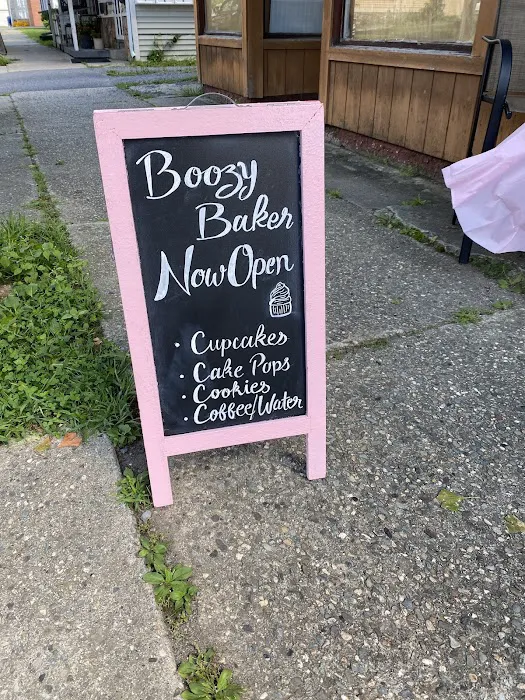 Boozy
Baker
Now Open
• Cupcakes
• Cake Pops
• Cookies
• Coffee/Water